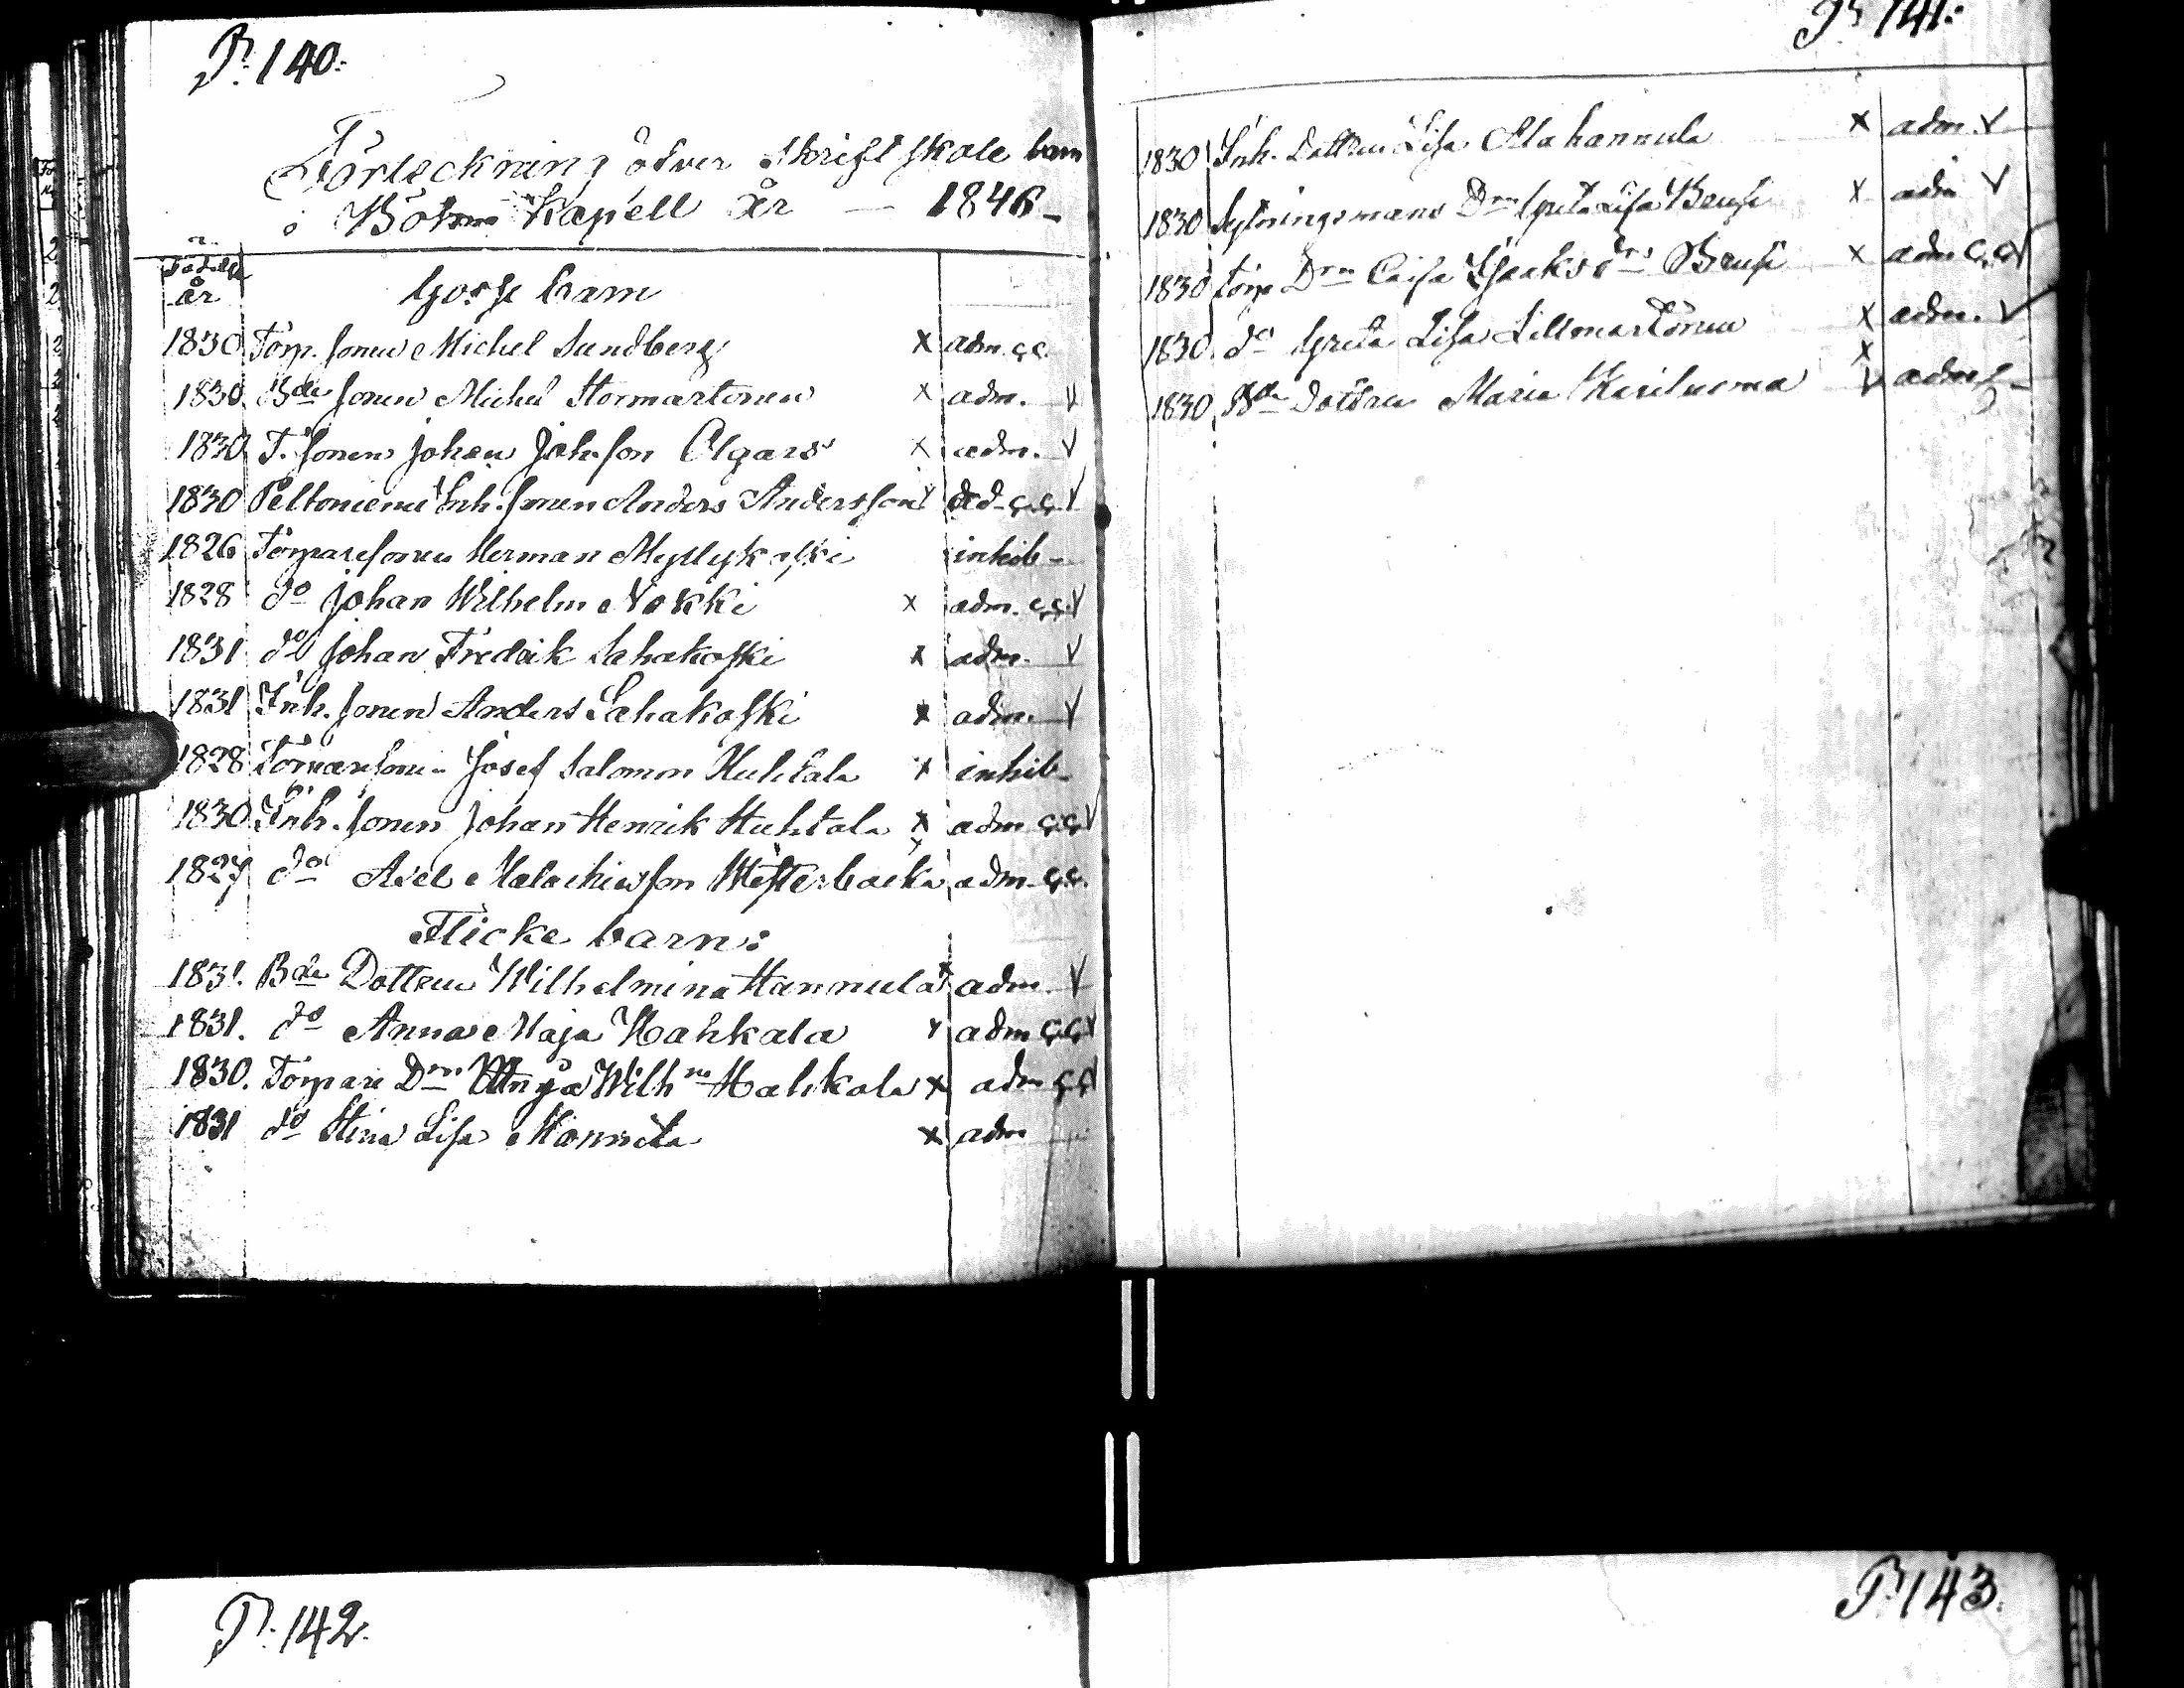 P. 140.
Förteckning öfver Skriftskole barn
i Kapell år — 1846 –
Födelse
år
Gosse barn
1830 Torp. sonen Michel Sundberg x adm. c.c.
1830 Bde sonen Michel Stormartonen x adm. V
1830 T. sonen Johan Johnson Elgars x adm. V
1830 Peltoniemi Inh. sonen Anders Andersson c.c. V
1826 Torparesonen Herman Myllykoski inhib –
1828 do Johan Wilhelm Nokki x adm. c.c. V
1831 do Johan Fredrik Sahakoski x adm. V
1831 Inh. sonen Anders Sahakoski x adm. V
1828 Josef Salomon Huhtala x inhib –
1830 Inh. sonen Johan Henrik Huhtala x adm c.c. V
1827 do Axel Malachiasson Westerbacka adm. c.c.
Flicke barn:
1831. Bde Dottren Wilhelmina Hannula x adm. V
1831. do Anna Maja Kahkala x adm c.c. V
1830. Torpare Drn Wilhna Hahkala x adm c.c. V
1831 do Stina Lisa Monneta x adm
P. 141:
1830 Inh. Dottren Lisa Ala hannula x adm. V
1830 Sytningsmans Drn Greta Lisa Brusi x adm V
1830 Torp Drn Caisa Isaksdrs Brusi x adm c.c. V
1830. do Greta Lisa Lillmartonen x adm. V
1830 Bde Dottren Maria Kariluoma x V adm
P. 142.
P. 143.